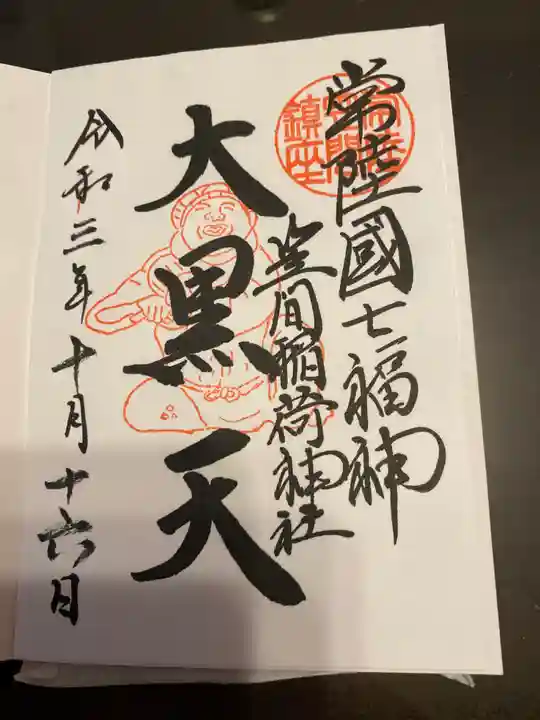 常陸國七福神
笠間稲荷神社
大黒天
令和三年十月十六日